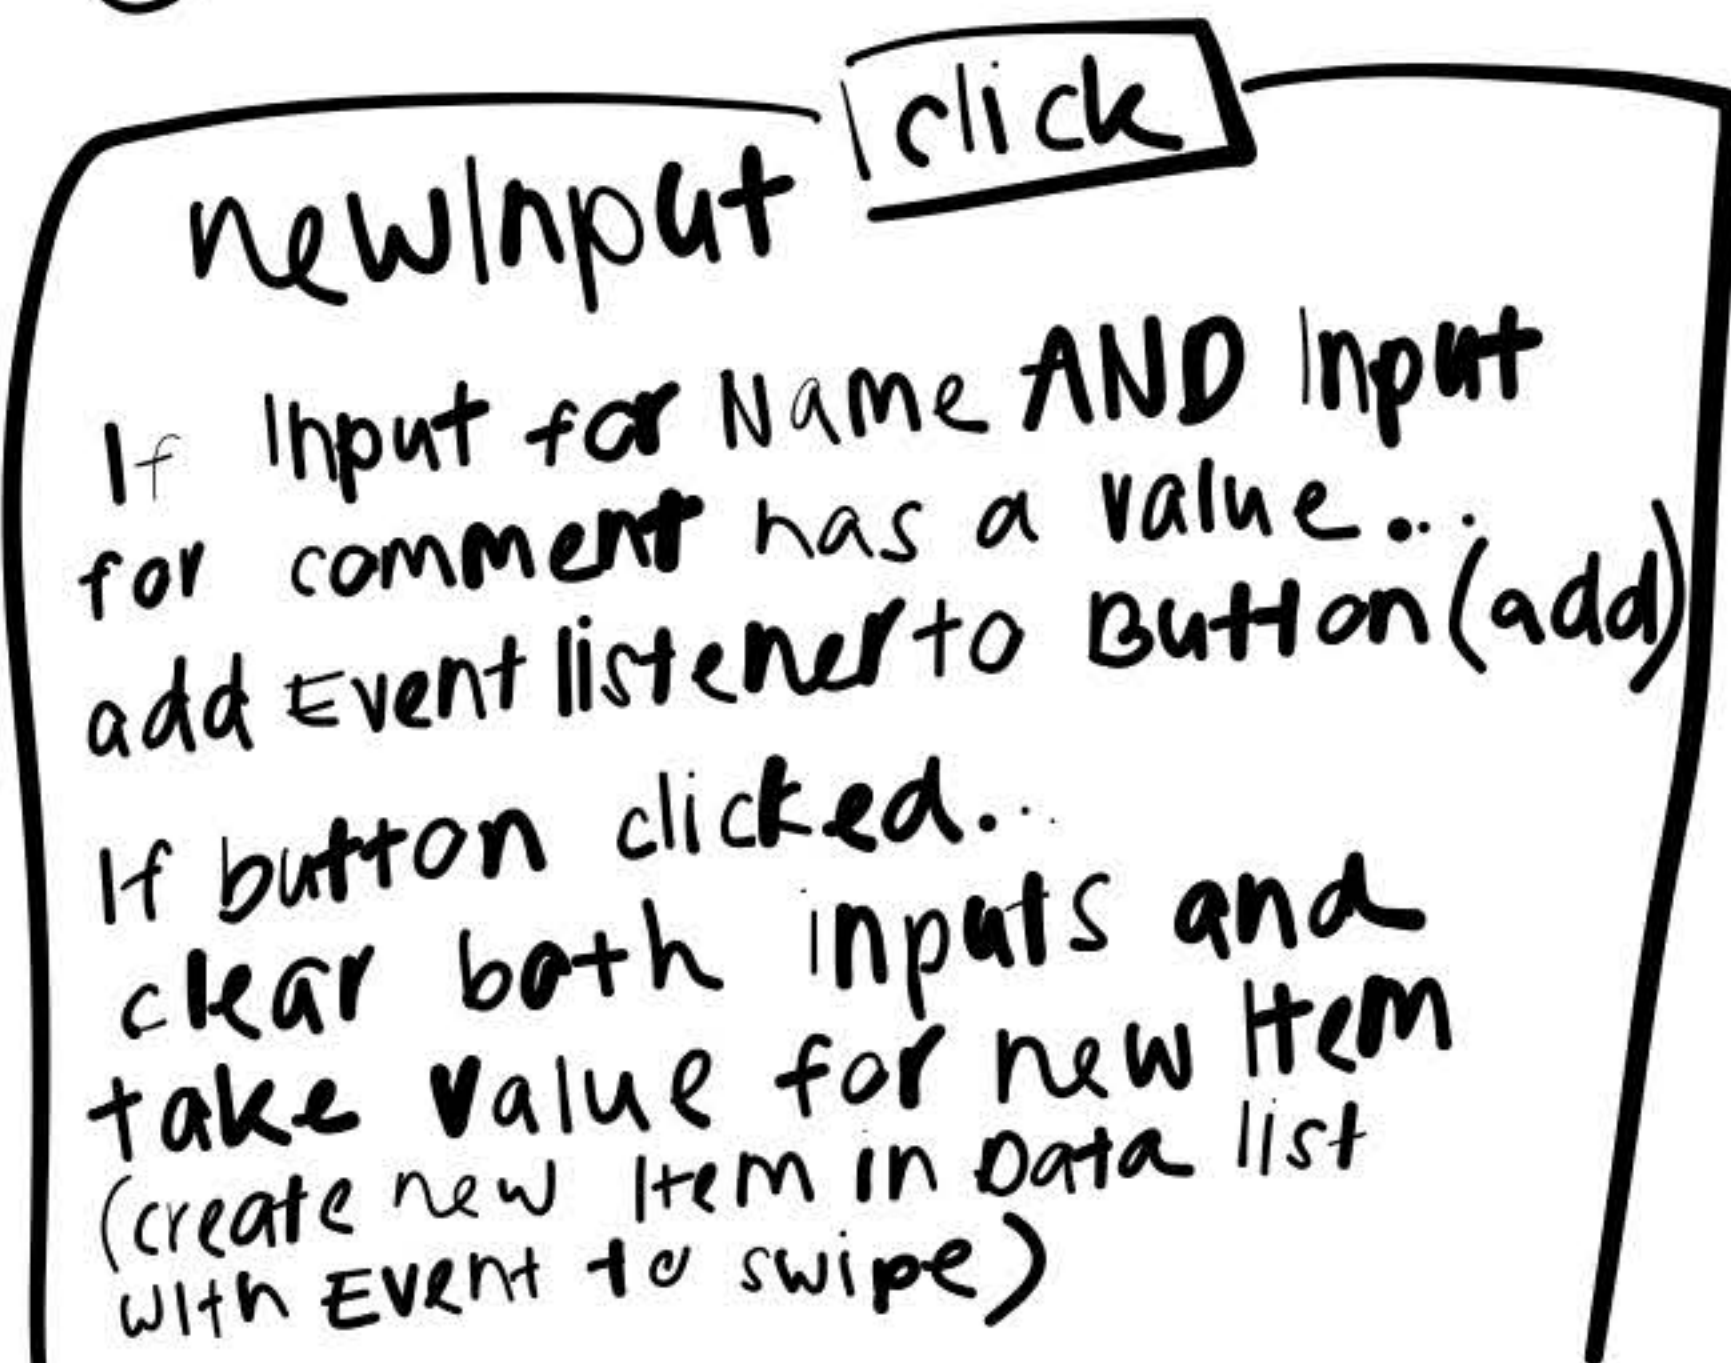 click
newInput
If Input for Name AND Input
for comment has a value...
add Event listener to Button (add)
If button clicked...
clear both inputs and
take value for new Item
(create new Item in Data list
with Event to swipe)